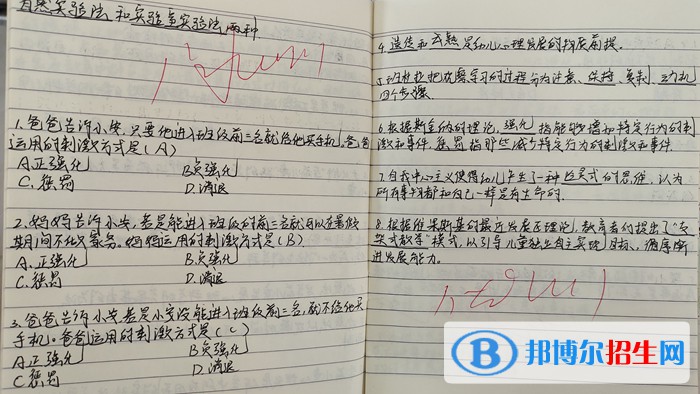 自然实验法 和实验室实验法 两种
1. 爸爸告诉小安,只要他进入班级前三名就给他买手机,爸爸
运用的刺激方式是(A)
A.正强化 B负强化
C.惩罚 D.消退
2.妈妈告诉小安,若是能进入班级的前三名就可以在暑假
期间不做家务。妈妈运用的刺激方式是(B)
A.正强化 B.负强化
C.惩罚 D.消退
3.爸爸告诉小安若是小安没能进入班级前三名,就不给他买
手机。爸爸运用的刺激方式是(C)
A.正强化 B负强化
C.惩罚 D.消退
4.遗传和成熟是幼儿心理发展的物质前提。
5.班杜拉把观察学习的过程分为注意、保持、复制、动机
四个步骤
6.根据斯金纳的理论,强化指能够增加特定行为的刺
激和事件 惩罚指那些减少特定行为的刺激和事件
7.自我中心主义使得幼儿产生了一种泛灵式的思维,认为
所有事物都和自己一样是有生命的.
8.根据维果斯基的最近发展区理论,教育者们提出了“支
架式教学”模式,以引导儿童独立自主实现目标、循序渐
进发展能力。
邦博尔招生网